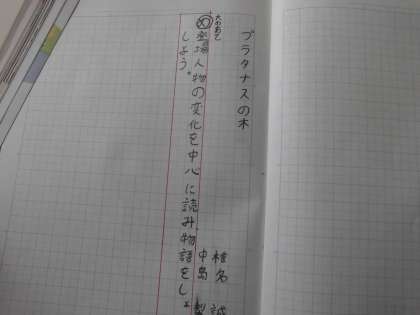 プラタナスの木
椎名 誠
大のめあて
め 登場人物の変化を中心に読み、物語をしょ
中島
しょう。